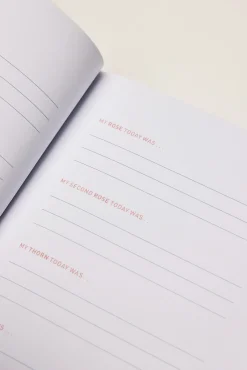 MY ROSE TODAY WAS...
MY SECOND ROSE TODAY WAS...
MY THORN TODAY WAS...